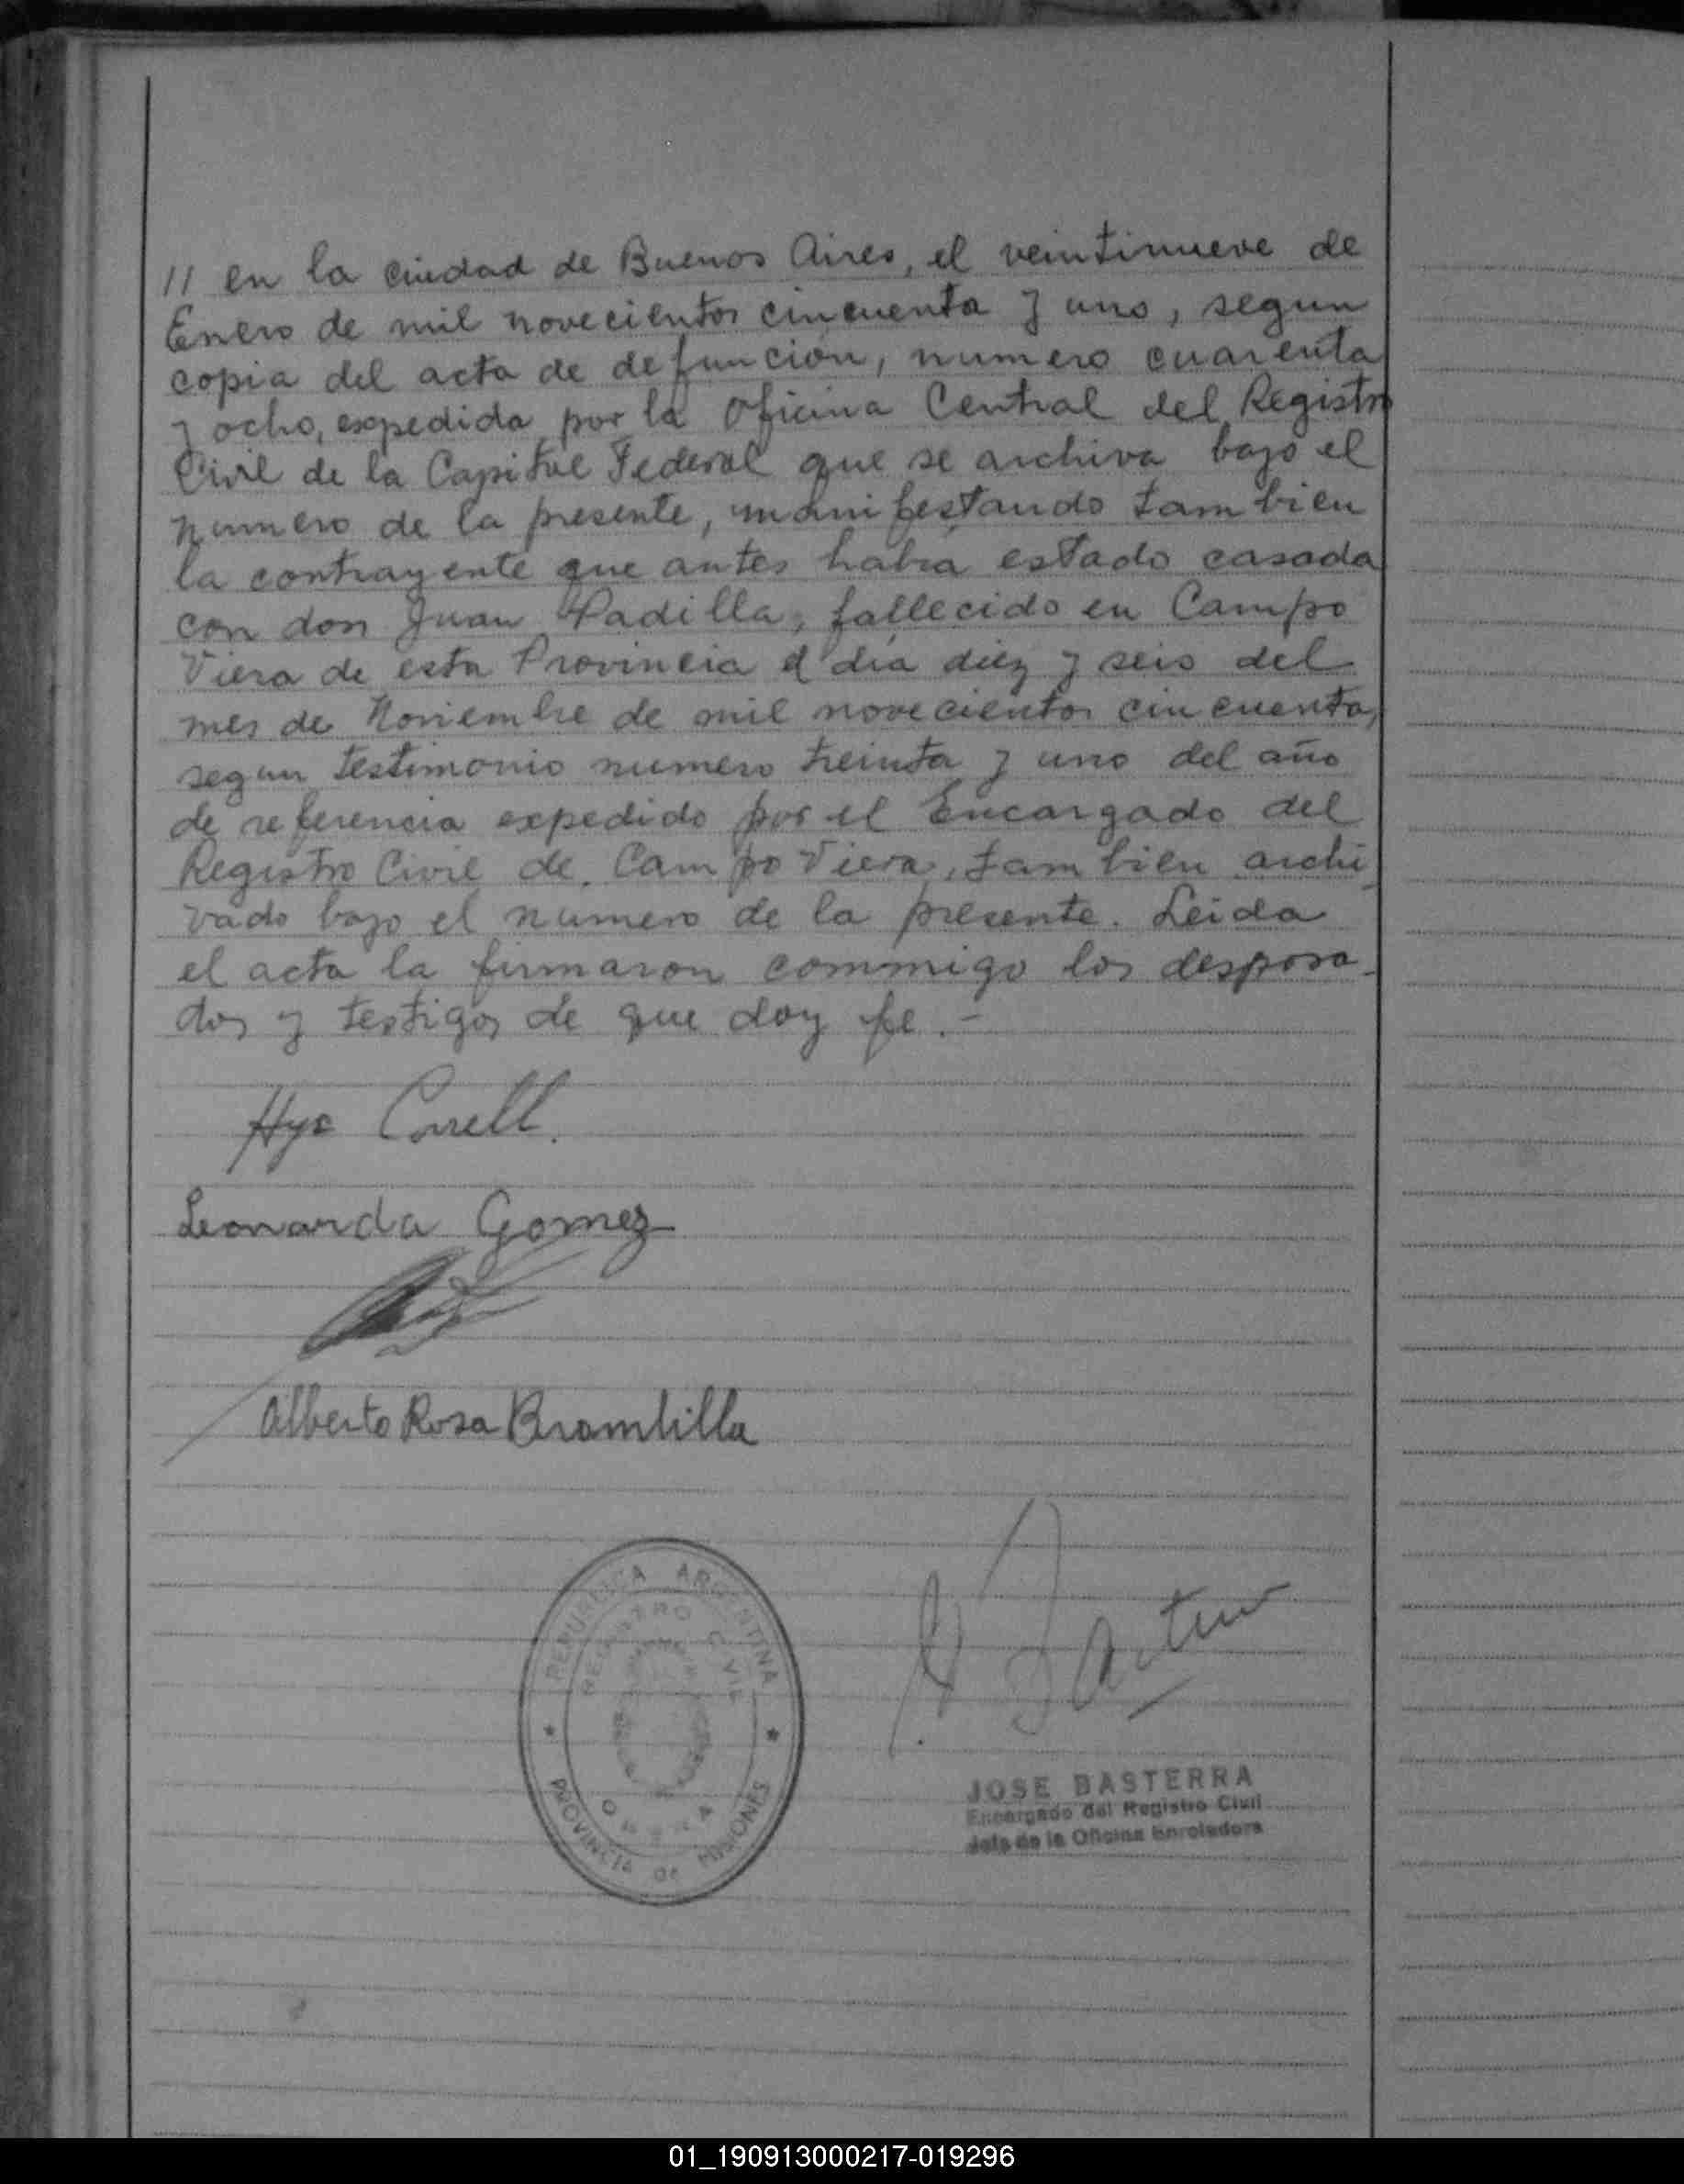 // en la ciudad de Buenos Aires, el veintinueve de
Enero de mil novecientos cincuenta y uno, segun
copia del acta de defunción, numero cuarenta
y ocho, expedida por la Oficina Central del Registro
Civil de la Capital Federal que se archiva bajo el
numero de la presente, manifestando tambien
la contrayente que antes habia estado casada
con don Juan Padilla, fallecido en Campo
Viera de esta Provincia el dia diez y seis del
mes de Noviembre de mil novecientos cincuenta,
segun testimonio numero treinta y uno del año
de referencia expedido por el Encargado del
Registro Civil de Campo Viera, tambien archi
vado bajo el numero de la presente. Leida
el acta la firmaron commigo los desposa-
dos y testigos de que doy fe.-
Leonarda Gomez
Alberto Rosa Brambilla
REPUBLICA ARGENTINA
REGISTRO CIVIL
PROVINCIA DE MISIONES
JOSE BASTERRA
Encargado del Registro Civil
Jefe de la Oficina Enroladora
01_190913000217-019296